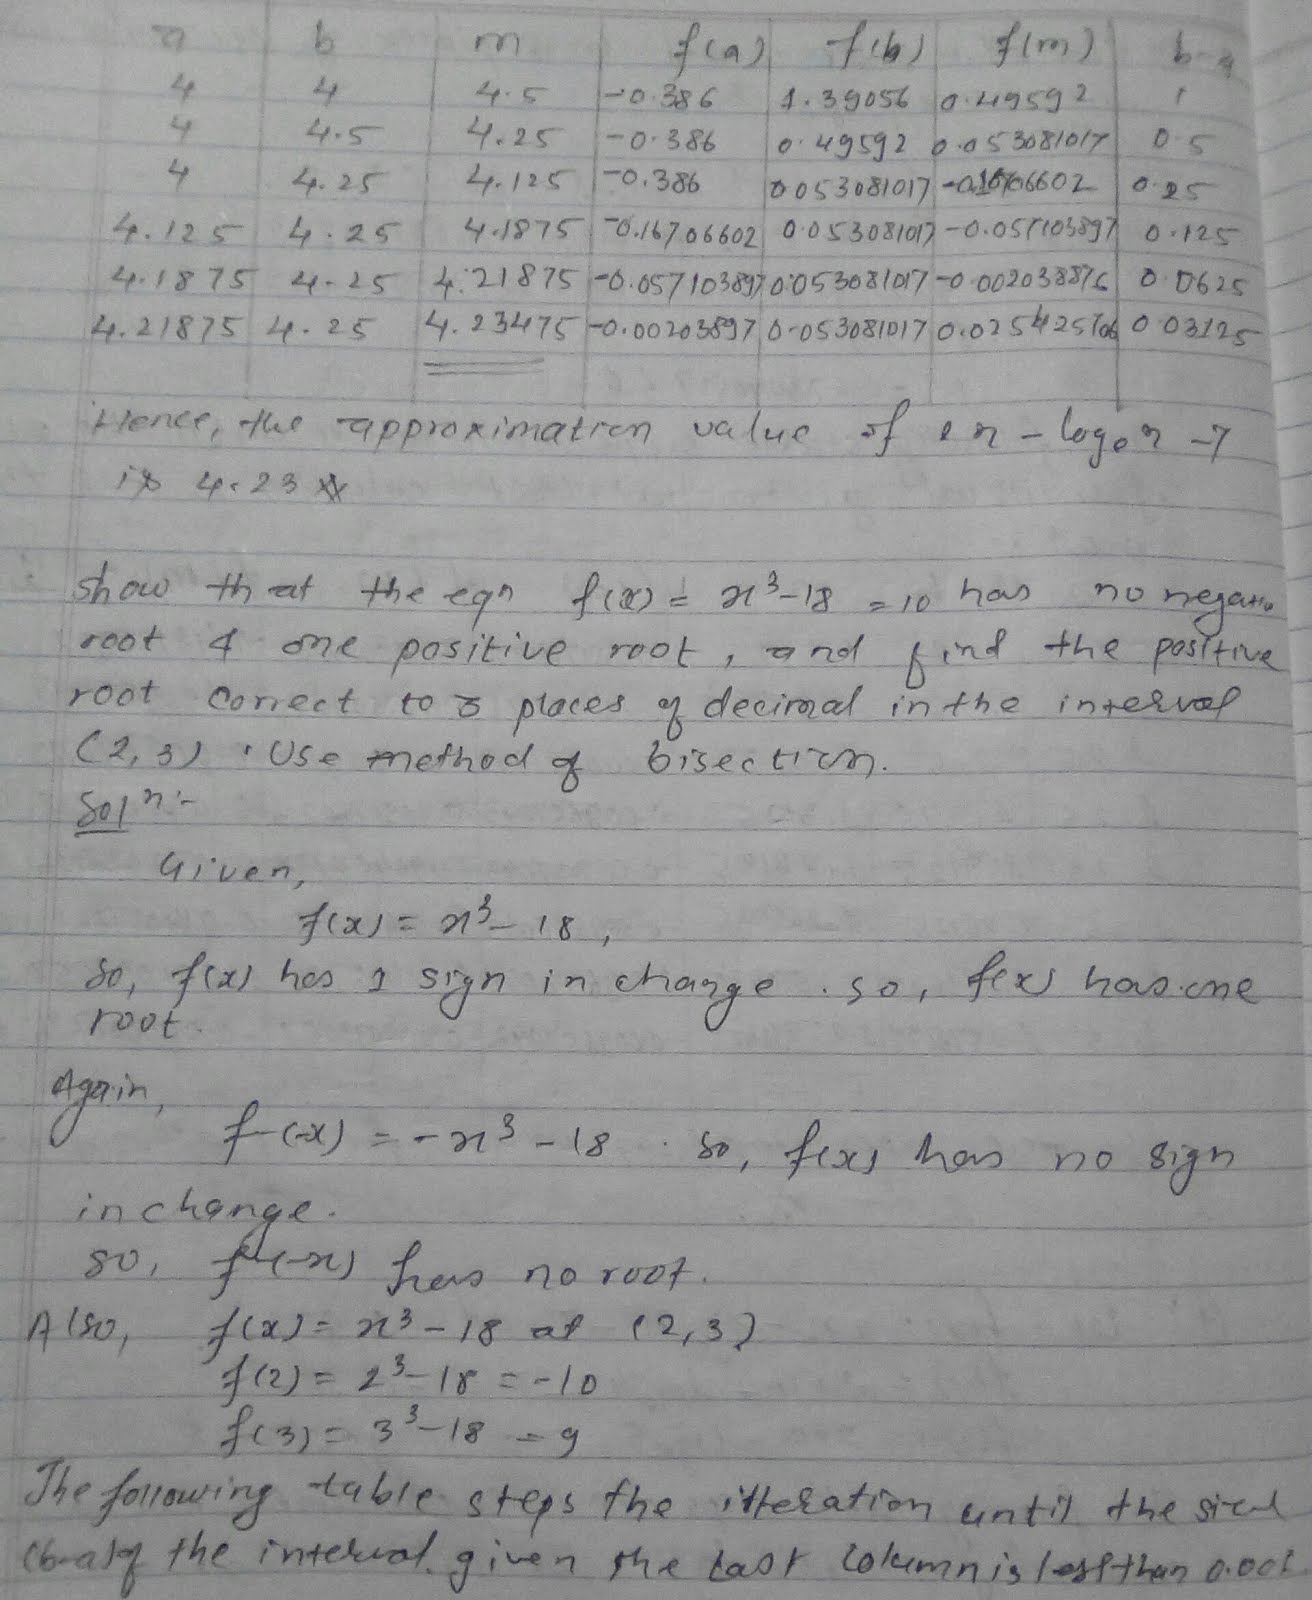 a b m f(a) f(b) f(m) b-a
4 4 4.5 -0.386 1.39056 0.49592 1
4 4.5 4.25 -0.386 0.49592 0.053081017 0.5
4 4.25 4.125 -0.386 0.053081017 0.25
4.125 4.25 4.1875 -0.16706602 0.053081017 -0.057103897 0.125
4.1875 4.25 4.21875 -0.057103897 0.053081017 -0.002038876 0.0625
4.21875 4.25 4.23475 -0.00203897 0.053081017 0.03125
Hence, the approximation value of - 7
is 4.23
show that the eqn f(x) = x³-18 = 10 has no
root & one positive root, and find the positive
root correct to 3 places of decimal in the interval
(2,3). Use method of bisection.
Solⁿ:-
Given,
f(x) = x³ - 18,
so, f(x) has 1 sign in change. so, f(x) has one
root.
Again,
f(-x) = -x³ - 18. So, f(x) has no sign
in change.
so, f(-x) has no root.
Also, f(x) = x³ - 18 at (2,3)
f(2) = 2³ - 18 = -10
f(3) = 3³ - 18 = 9
The following table steps the itteration until the
(b-a) of the interval given the last column is less than